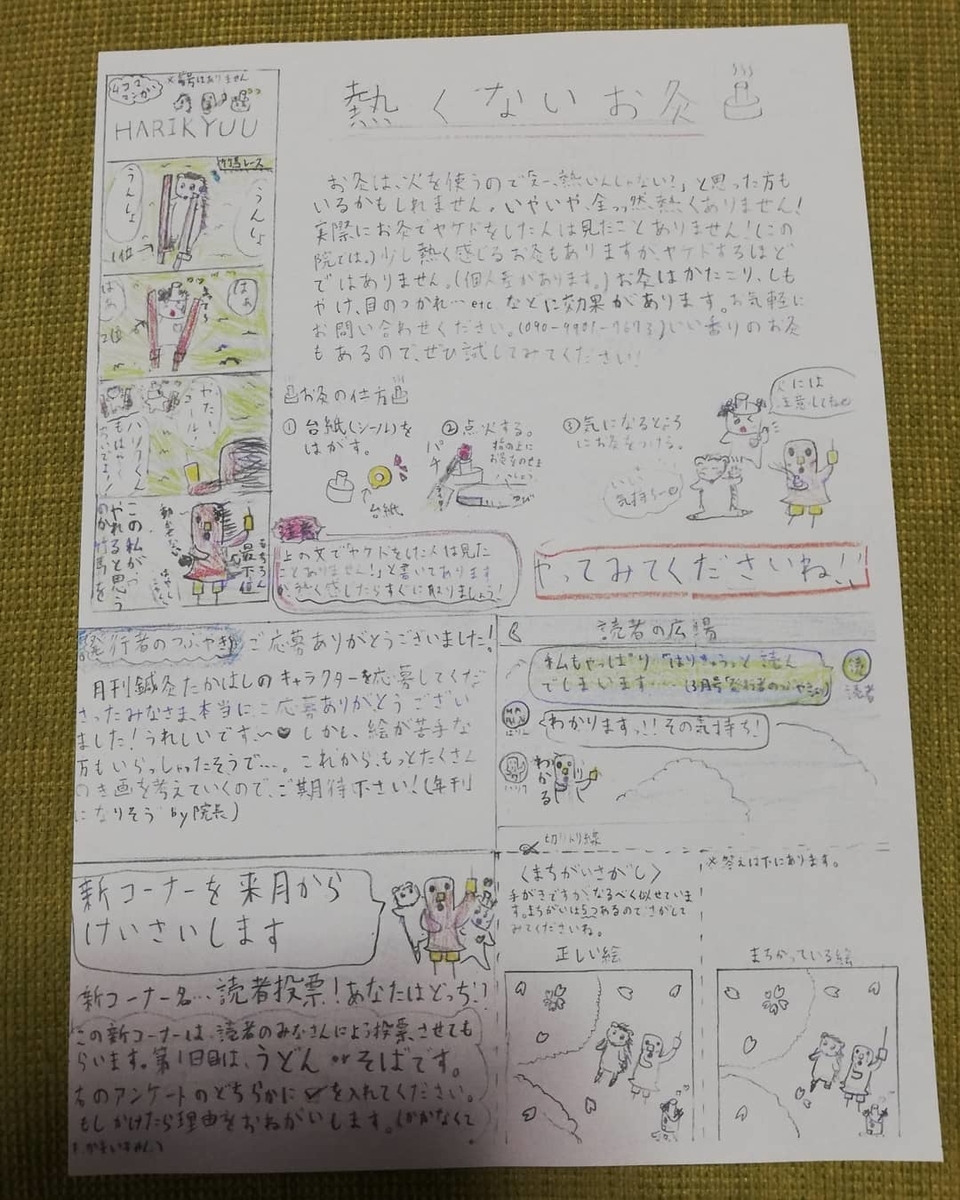 4コママンガ
※番号はありません
HARIKYUU
竹馬レース
うんしょ
うんしょ
1位
はぁ
はぁ
2位
やたー
ゴール!
ハリくん
もはや〜
もちろん
最下位
この、私が
やれると思う
のか竹馬を
熱くないお灸
お灸は、火を使うので「えー、熱いんしゃない?」と思った方も
いるかもしれません。いやいや、全っ然、熱くありません!
実際にお灸でヤケドをした人は見たことありません!(この
院では。)少し熱く感じるお灸もありますがヤケドするほど
ではありません。(個人差があります。)お灸はかたこり、しも
やけ、目のつかれ…etc.などに効果があります。お気軽に
お問い合わせください。いい香りのお灸
もあるので、ぜひ試してみてください!
お灸の仕方
① 台紙(シール)を
はがす。
台紙
② 点火する。
指の上に
お灸をのせる
③ 気になるところ
にお灸をつける。
火には
注意してね
いい
気持ち〜
注意
上の文で「ヤケドをした人は見た
ことありません!」と書いてあります
が熱く感したらすぐに取りましょう!
やってみてくださいね!!
発行者のつぶやき
ご応募ありがとうございました!
月刊鍼灸たかはしのキャラクターを応募してくだ
さったみなさま、本当にご応募ありがとうござい
ました!うれしいです〜♥ しかし、絵が苦手な
方もいらっしゃったそうで…。これから、もっとたくさん
のき画を考えていくので、ご期待下さい!(年刊
になりそう by院長)
読者の広場
私もやっぱり「はりきゅう」と読ん
でしまいます……(3月号「発行者のつぶやき」)
読者
わかりますっ!!その気持ち!
わかる
新コーナーを来月から
けいさいします
新コーナー名…読者投票!あなたはどっち!?
この新コーナーは、読者のみなさんによう投票させても
らいます。第1日目は、うどん or そばです。
右のアンケートのどちらかに✓を入れてください。
もしかけたら理由をおねがいします。(かかなくて
もかまいません。)
切りとり線
〈まちがいさがし〉
手がきですが、なるべく似せていま
す。まちがいは5つあるのでさがして
みてくださいね。
※答えは下にあります。
正しい絵
まちがっている絵